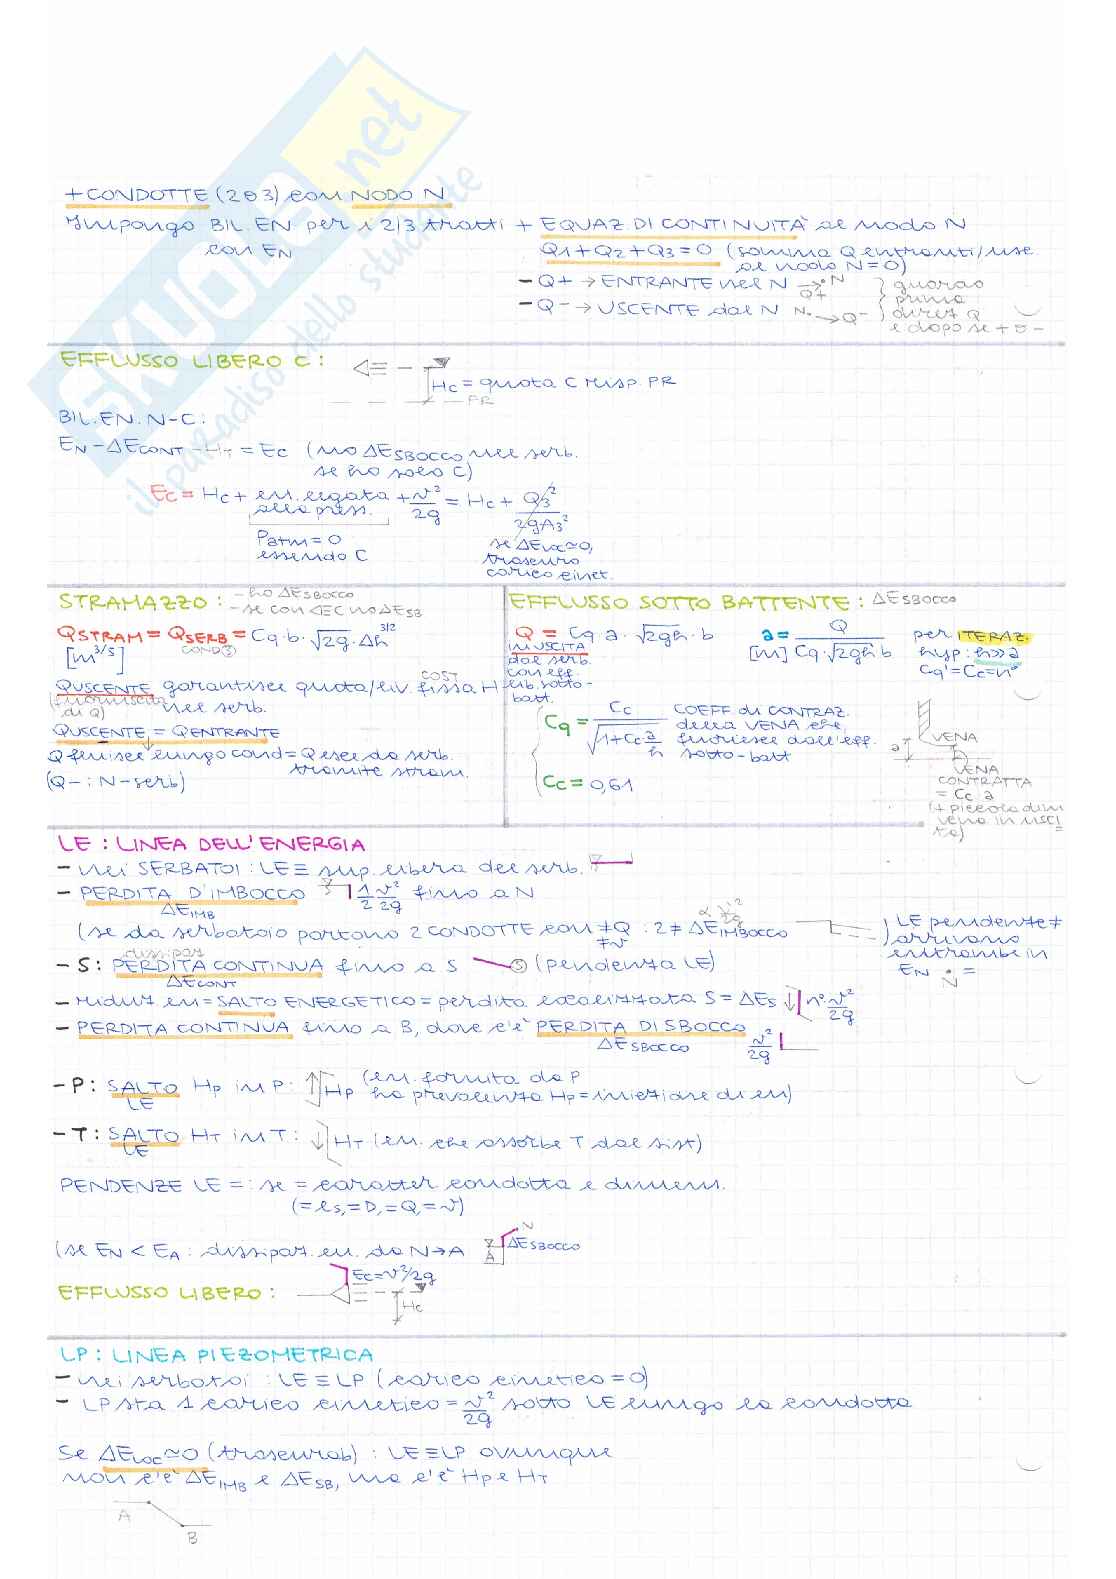 + CONDOTTE (2 o 3) con NODO N
Impongo BIL. EN per i 2/3 tratti + EQUAZ. DI CONTINUITÀ al nodo N
con EN
Q1 + Q2 + Q3 = 0 (somma Q entranti/usc.
al nodo N = 0)
- Q+ → ENTRANTE nel N → N
Q+
- Q- → USCENTE dal N N. → Q-
guardo
prima
direz Q
e dopo se + o -
EFFLUSSO LIBERO C:
Hc = quota C risp. PR
PR
BIL. EN. N-C:
EN - ΔECONT - HT = EC (no ΔESBOCCO nel serb.
se ho solo C)
EC = HC + en. legata alla press. + v²/2g = HC + Q3²/2gA3²
Patm = 0
essendo C
se ΔELOC ≃ 0,
trascuro
carico cinet.
STRAMAZZO: - ho ΔESBOCCO
- se con ◁EC no ΔESB
QSTRAM = QSERB = Cq · b · √2g · Δh^3/2
[m³/s]
COND ③
QUSCENTE garantisce quota/liv. fissa H
COST
(fuoriuscita
di Q)
nel serb.
QUSCENTE = QENTRANTE
Q fluisce lungo cond = Q esce da serb.
tramite stram.
(Q- : N-serb)
EFFLUSSO SOTTO BATTENTE: ΔESBOCCO
Q = Cq a · √2gh · b
IN USCITA
dal serb.
con eff.
lib. sotto-
batt.
a = Q / Cq·√2gh b
[m]
per ITERAZ.
hyp: h>>a
Cq' = Cc = n°
Cq = Cc / √1+Cc a/h
COEFF di CONTRAZ.
della VENA che
fuoriesce dall'eff.
sotto-batt
Cc = 0,61
a
VENA
VENA
CONTRATTA
= Cc a
(+ piccola dim
vena in usci
ta)
LE: LINEA DELL'ENERGIA
- nei SERBATOI: LE ≡ sup. libera del serb.
- PERDITA D'IMBOCCO 1/2 v²/2g fino a N
ΔEIMB
(se da serbatoio partono 2 CONDOTTE con ≠Q : 2 ≠ ΔEIMBOCCO
≠v
α v²/2g
LE pendenze ≠
arrivano
entrambe in
EN =
N
dissipaz
- S: PERDITA CONTINUA fino a S S (pendenza LE)
ΔECONT
- riduz en = SALTO ENERGETICO = perdita localizzata S = ΔES n° v²/2g
- PERDITA CONTINUA fino a B, dove c'è PERDITA DI SBOCCO
ΔESBOCCO v²/2g
- P: SALTO HP in P: HP (en. fornita da P
LE
ha prevalenza HP = iniezione di en)
- T: SALTO HT in T: HT (en. che assorbe T dal sist)
LE
PENDENZE LE =: se = caratter condotta e dimens.
(= ls, = D, = Q, = v)
(se EN < EA: dissipaz. en. da N→A
N
A
ΔESBOCCO
EFFLUSSO LIBERO: EC = v²/2g
HC
LP: LINEA PIEZOMETRICA
- nei serbatoi: LE ≡ LP (carico cinetico = 0)
- LP sta 1 carico cinetico = v²/2g sotto LE lungo la condotta
Se ΔELOC ≃ 0 (trascurab): LE ≡ LP ovunque
non c'è ΔEIMB e ΔESB, ma c'è HP e HT
A
B
SKUOLA.net
il paradiso dello studente